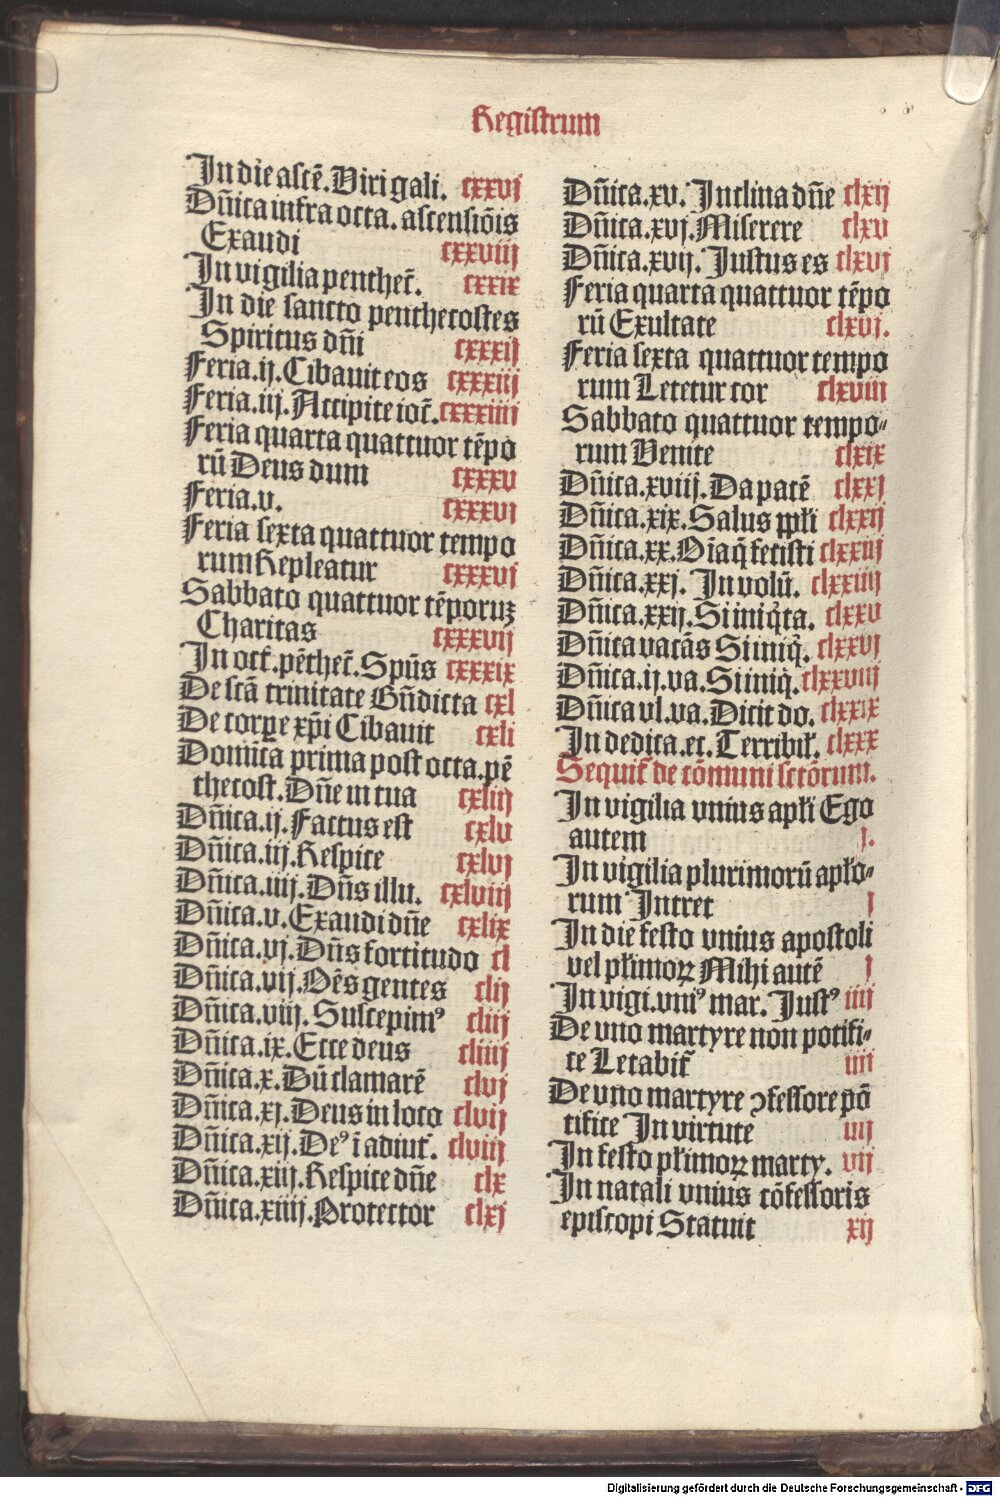 Registrum
In die ascē. Viri gali. cxxvj
Dñica infra octa. ascensiōis
Exaudi cxxviij
In vigilia penthec̄. cxxix
In die sancto penthecostes
Spiritus dñi cxxxij
Feria.ij. Cibauit eos cxxxiij
Feria.iij. Accipite ioc̄. cxxxiiij
Feria quarta quattuor tēpo
rū Deus dum cxxxv
Feria.v. cxxxvj
Feria sexta quattuor tempo
rum Repleatur cxxxvj
Sabbato quattuor tēporuꝫ
Charitas cxxxvij
In oct̄. pēthec̄. Spūs cxxxix
De scā trinitate Bñdicta cxl
De corꝑe xp̄i Cibauit cxli
Domīca prima post octa. pē
thecost. Dñe in tua cxliij
Dñica.ij. Factus est cxlv
Dñica.iij. Respice cxlvj
Dñica.iiij. Dñs illu. cxlviij
Dñica.v. Exaudi dñe cxlix
Dñica.vj. Dñs fortitudo cl
Dñica.vij. Oēs gentes clij
Dñica.viij. Suscepimꝰ cliij
Dñica.ix. Ecce deus cliiij
Dñica.x. Dū clamarē clvj
Dñica.xj. Deus in loco clvij
Dñica.xij. Deꝰ ī adiut̄. clviij
Dñica.xiij. Respice dñe clx
Dñica.xiiij. Protector clxj
Dñica.xv. Inclina dñe clxij
Dñica.xvj. Miserere clxv
Dñica.xvij. Iustus es clxvj
Feria quarta quattuor tēpo
rū Exultate clxvj.
Feria sexta quattuor tempo
rum Letetur cor clxviij
Sabbato quattuor tempo⸗
rum Venite clxix
Dñica.xviij. Da pacē clxxj
Dñica.xix. Salus ppłi clxxij
Dñica.xx. Oīa q̄ fecisti clxxiij
Dñica.xxj. In volū. clxxiiij
Dñica.xxij. Si iniq̇ta. clxxv
Dñica vacās Si iniq̇. clxxvj
Dñica.ij. va. Si iniq̇. clxxviij
Dñica vl. va. Dicit do. clxxix
In dedica. ec. Terribił. clxxx
Sequit̄ de cōmuni sctōrum.
In vigilia vnius apłi Ego
autem j.
In vigilia plurimorū apło⸗
rum Intret j
In die festo vnius apostoli
vel płimoꝝ Mihi autē j
In vigi. vniꝰ mar. Iustꝰ iiij
De vno martyre non pōtifi⸗
ce Letabit̄ iiij
De vno martyre ꝯfessore pō
tifice In virtute iiij
In festo płimoꝝ marty. vij
In natali vnius cōfessoris
episcopi Statuit xij
Digitalisierung gefördert durch die Deutsche Forschungsgemeinschaft - DFG